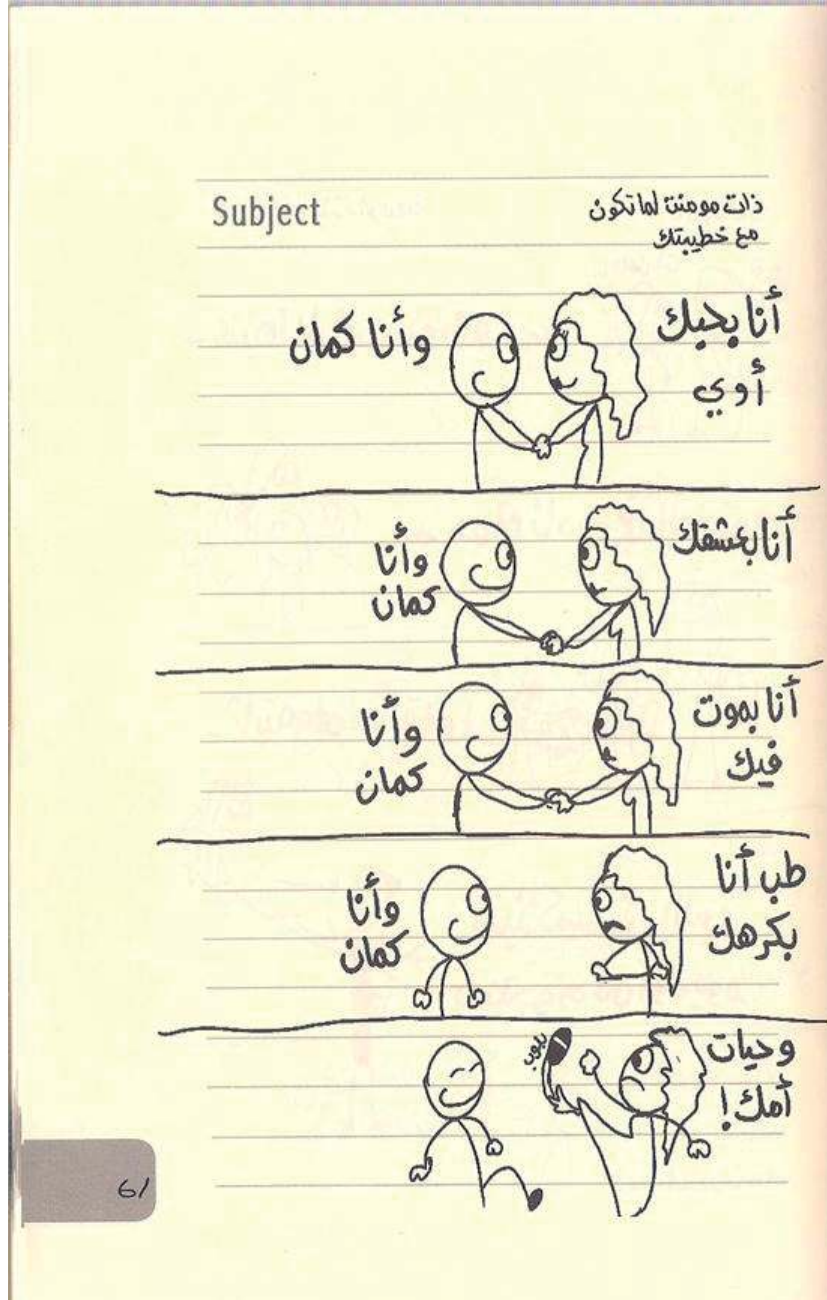 Subject
ذات مومنت لما تكون
مع خطيبتك
أنا بحبك
أوي
وأنا كمان
أنا بعشقك
وأنا
كمان
أنا بموت
فيك
وأنا
كمان
طب أنا
بكرهك
وأنا
كمان
وحيات
أمك!
61